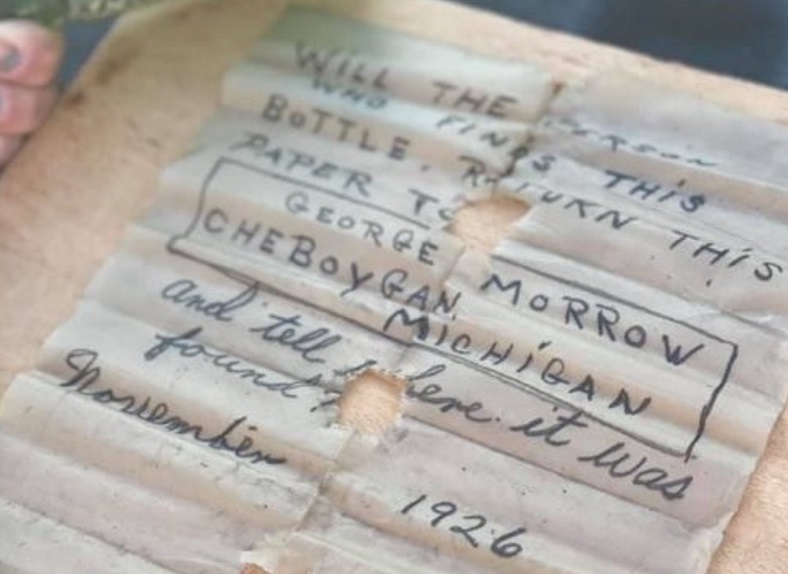 WILL THE PERSON
WHO FINDS THIS
BOTTLE. RETURN THIS
PAPER TO
GEORGE MORROW
CHEBOYGAN,
MICHIGAN
and tell where it was
found?
November
1926